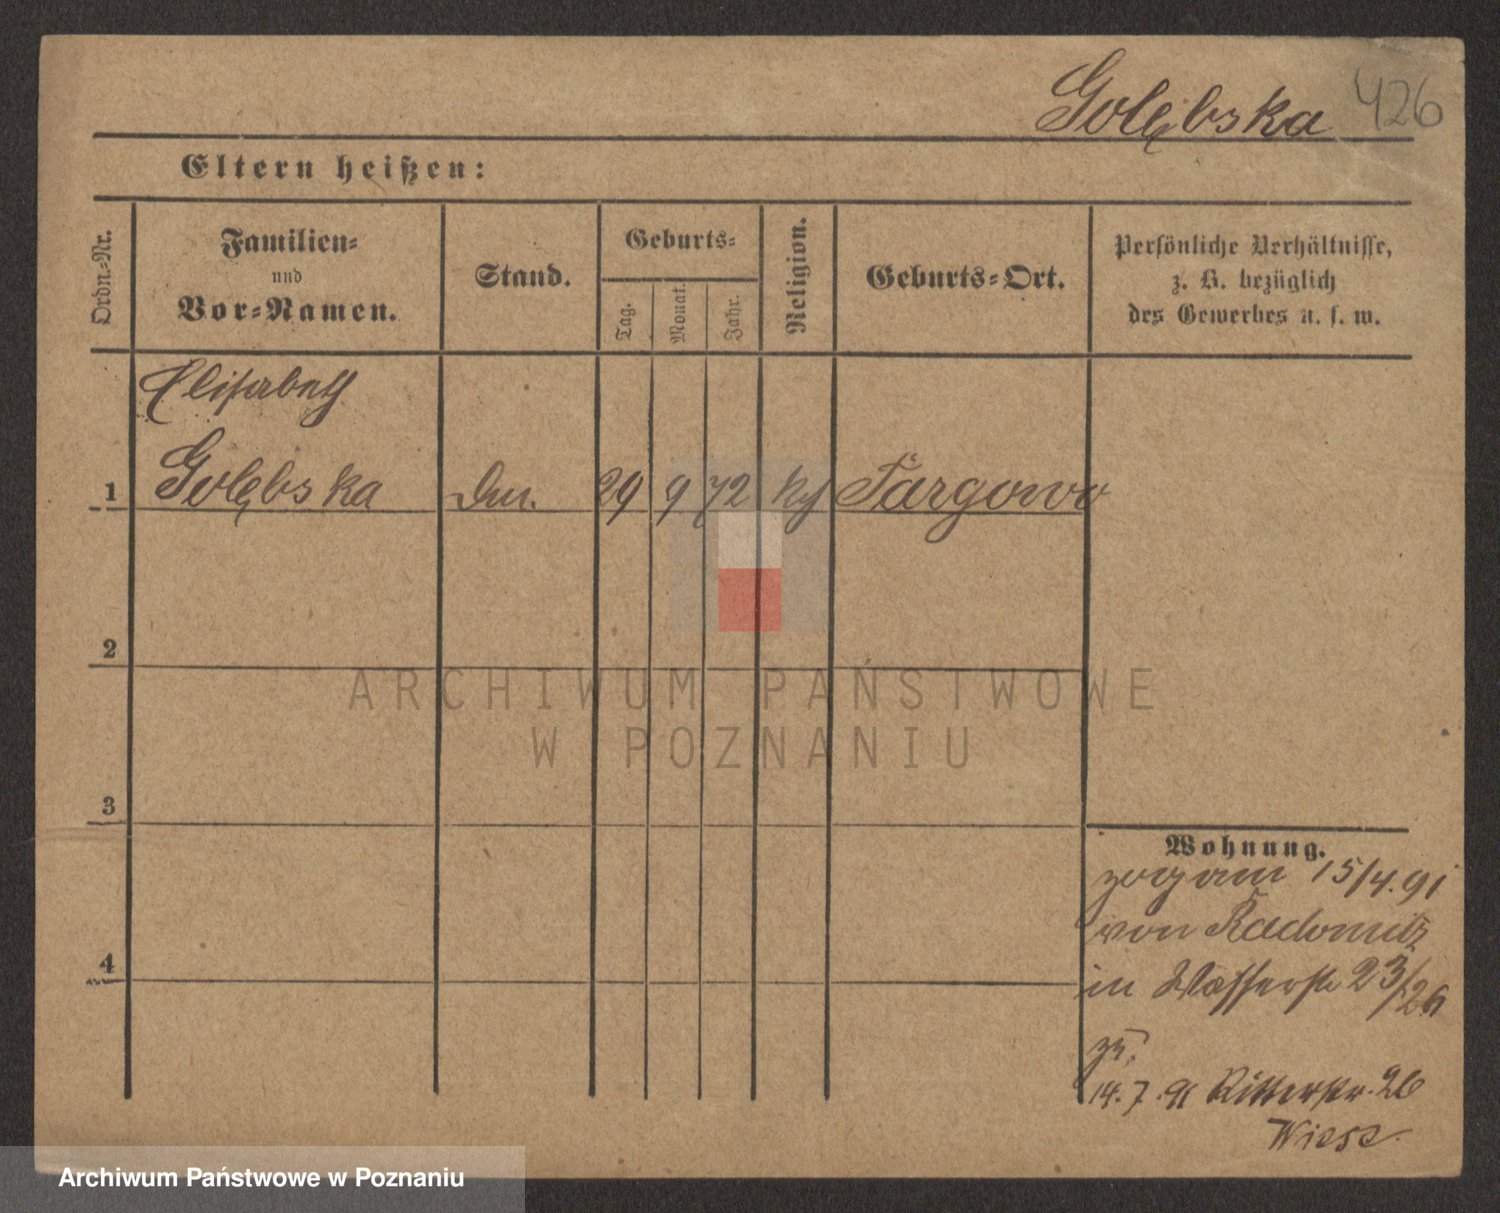 Golębska 426
Eltern heißen:
Ordn.-Nr.
Familien-
und
Vor-Namen.
Stand.
Geburts-
Tag.
Monat.
Jahr.
Religion.
Geburts-Ort.
Persönliche Verhältnisse,
z. B. bezüglich
des Gewerbes u. s. w.
Elisabeth
1 Golębska 29 9 72 Targowo
2
3
4
Wohnung.
zog am 15/4.91
von Radomitz
in Wasserstr 23/26
zu.
14.7.91 Ritterstr. 26
Wiese
ARCHIWUM PAŃSTWOWE
W POZNANIU
Archiwum Państwowe w Poznaniu